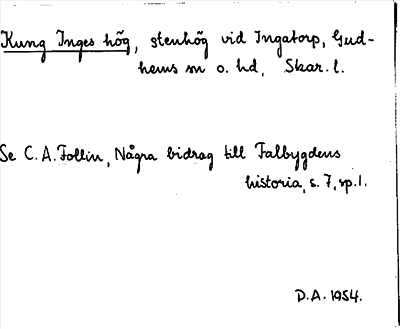 Kung Inges hög, stenhög vid Ingatorp, Gud-
hems sn o. hd, Skar. l.
Se C. A. Follin, Några bidrag till Falbygdens
historia, s. 7, sp. 1.
D. A. 1954.